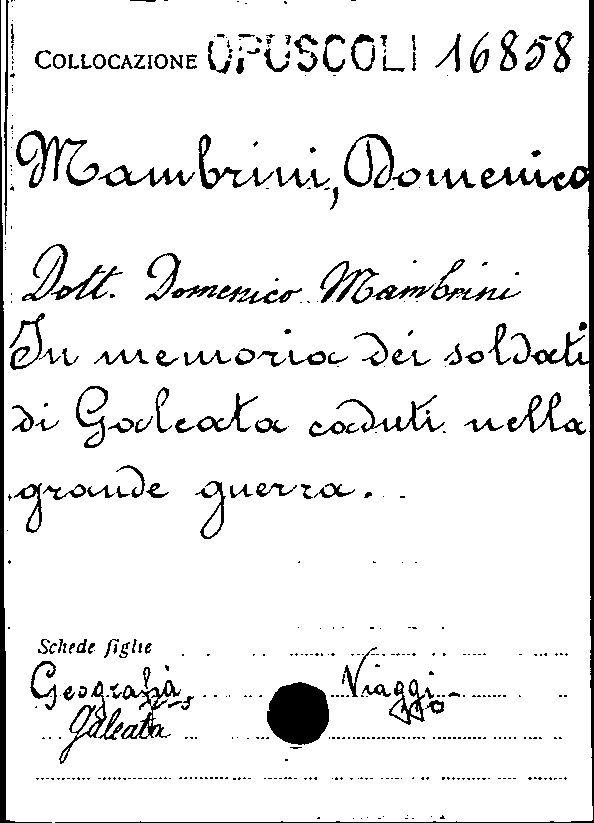 COLLOCAZIONE OPUSCOLI 16858
Mambrini, Domenico
Dott. Domenico Mambrini
In memoria dei soldati
di Galeata caduti nella
grande guerra.
Schede figlie
Geografia Viaggi
Galeata